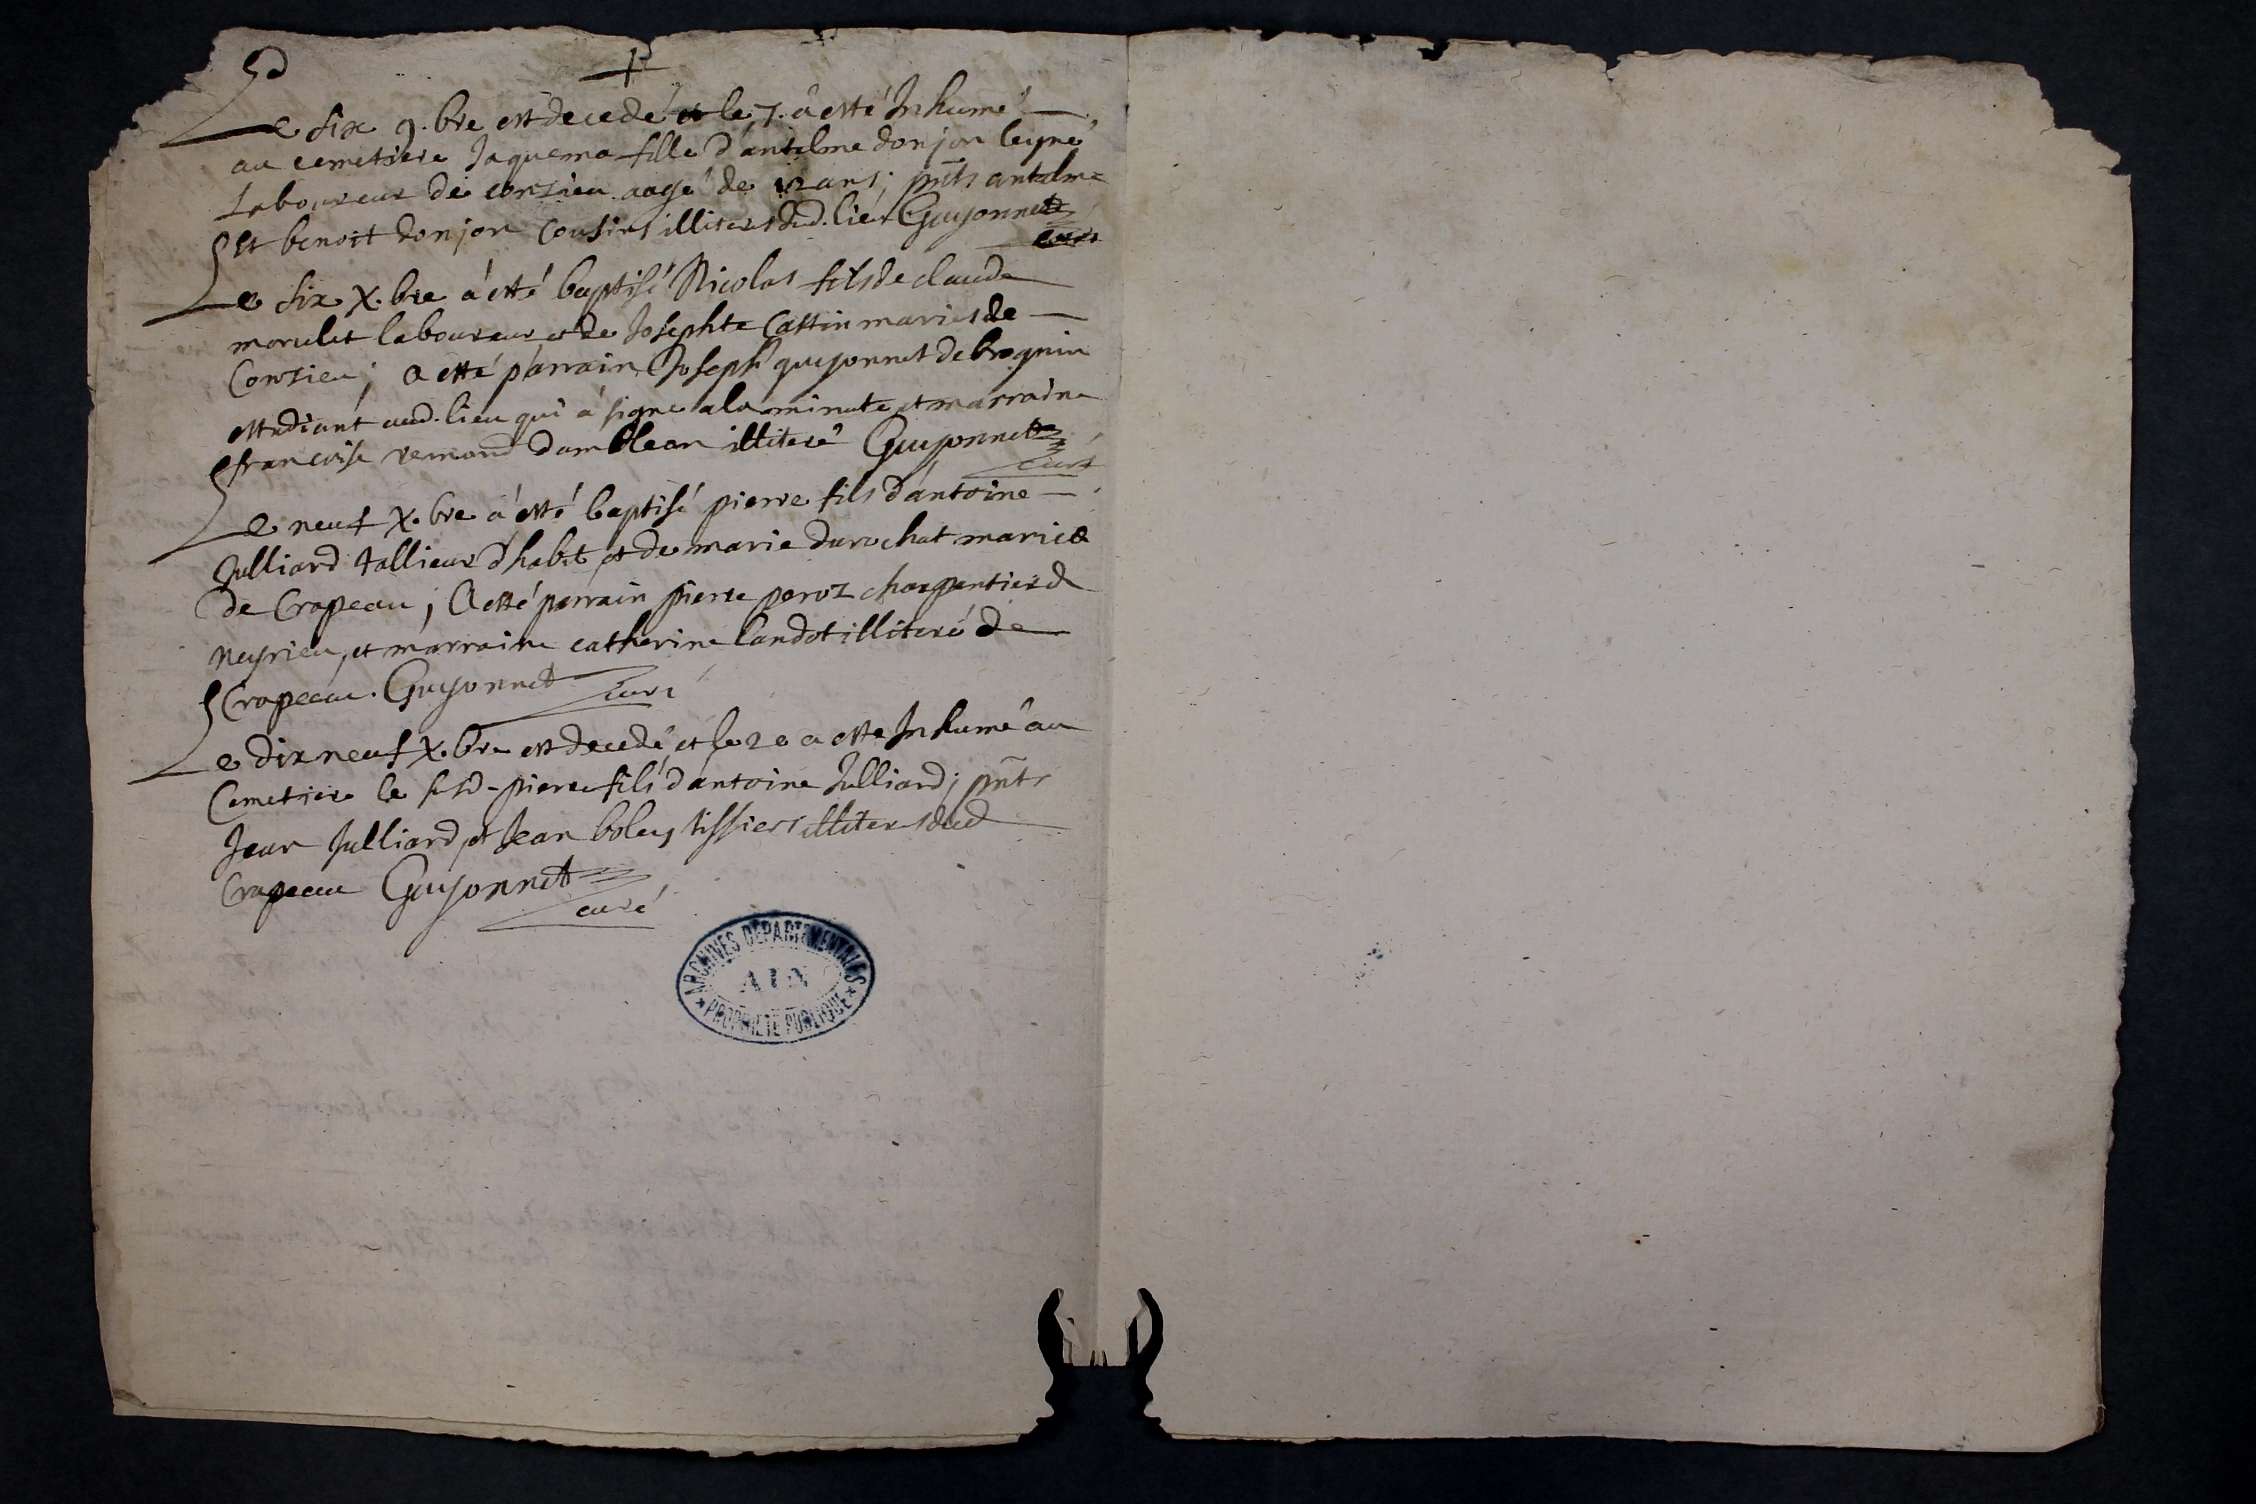 Le six 9.bre est decedé et le 7. à esté Inhumé
au cemetiere Jaquema fille d'antelme donjon leyné
Laboureur de contieu aagé de 12 ans; pnts antelme
Et benoit donjon cousins illiterés dud. lieu Guyonnet
curé
Le six X.bre à esté baptisé Nicolas fils de claude
morulet laboureur et de Josephte Castin mariés de
Contieu; a esté parrain Joseph guyonnet de brognin
estudiant aud. lieu qui à signe a la minute et marraine
francoise remond damblean illiteré Guyonnet
curé
Le neuf X.bre à esté baptisé pierre fils d'antoine
Julliard tallieur d'habit et de marie durochat mariés
de Crapeau; A esté parrain pierre peroz charpentier d
Neyrieu, et marraine catherine landot illiteré de
Crapeau. Guyonnet curé
Le dix neuf X.bre est decedé et le 20 a esté Inhumé au
Cemetiere le susd. pierre fils d'antoine Julliard; pnts
Jean Julliard, et Jean boley tissiers illiterés dud
Crapeau Guyonnet
curé
ARCHIVES DÉPARTEMENTALES
AIN
PROPRIÉTÉ PUBLIQUE